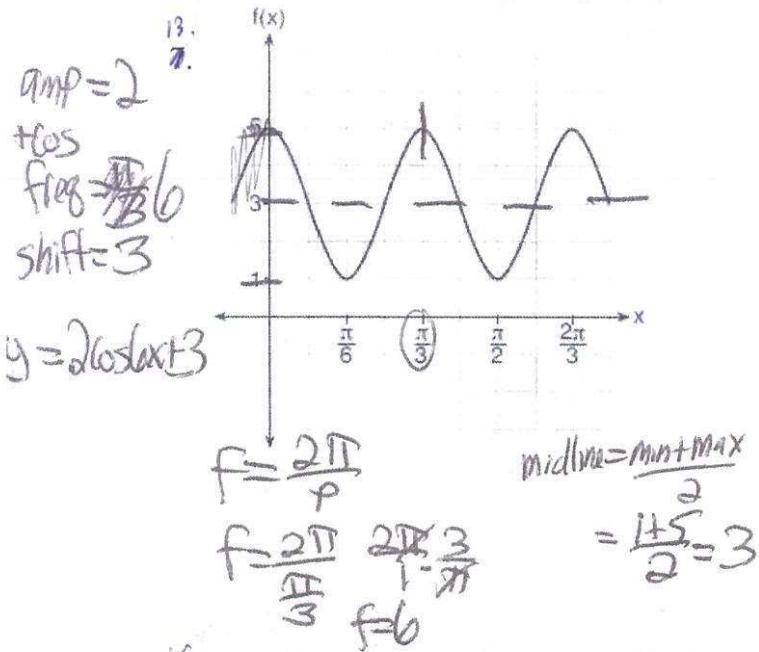 13.
7.
f(x)
amp = 2
+cos
freq = 6
shift = 3
y = 2cos6x+3
5
3
1
x
π/6
π/3
π/2
2π/3
f = 2π/p
f = 2π/(π/3) 2π/1 · 3/π
f=6
midline = min+max/2
= 1+5/2 = 3